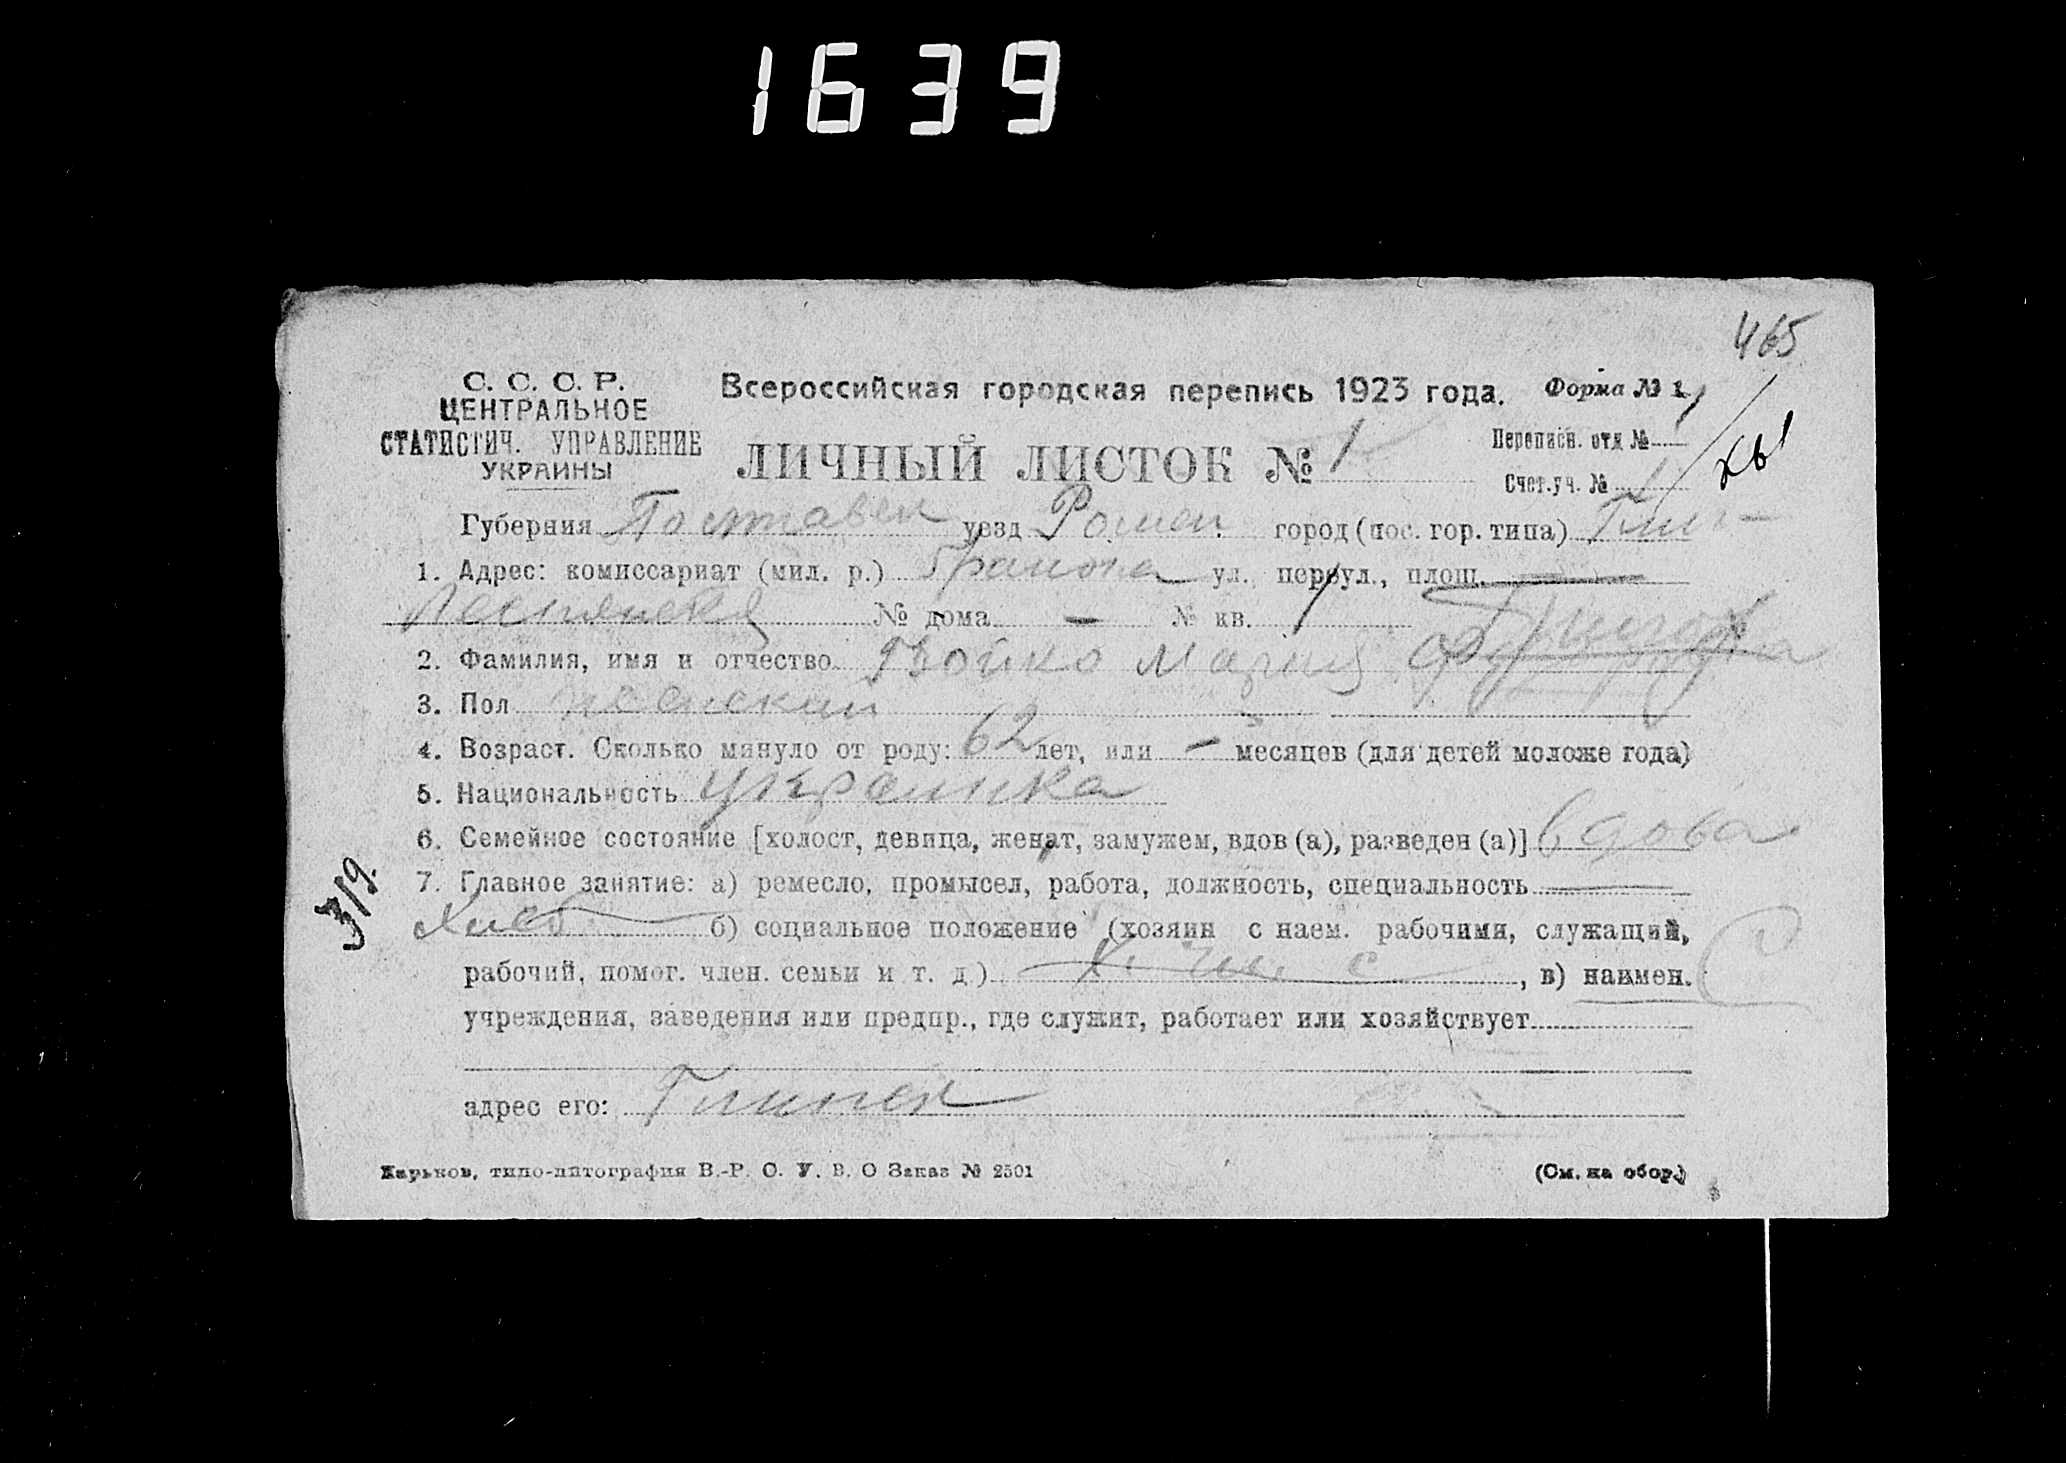 1639
465
С. С. С. Р.
ЦЕНТРАЛЬНОЕ
СТАТИСТИЧ. УПРАВЛЕНИЕ
УКРАИНЫ
Всероссийская городская перепись 1923 года. Форма № 1
ЛИЧНЫЙ ЛИСТОК № 1
Переписн. отд № 1
Счет.уч. № 1
Губерния Полтавск уезд Ромен город (пос. гор. типа)
1. Адрес: комиссариат (мил. р.) ул. переул., площ.
№ дома — № кв. 1
2. Фамилия, имя и отчество Бойко Мария
3. Пол женский
4. Возраст. Сколько минуло от роду: 62 лет, или — месяцев (для детей моложе года)
5. Национальность украинка
6. Семейное состояние [холост, девица, женат, замужем, вдов (а), разведен (а)] вдова
7. Главное занятие: а) ремесло, промысел, работа, должность, специальность
б) социальное положение (хозяин с наем. рабочими, служащий,
рабочий, помог. член. семьи и т. д.) , в) наимен.
учреждения, заведения или предпр., где служит, работает или хозяйствует
адрес его: Глинск
319.
Харьков, типо-литография В.-Р. С. У. В. О Заказ № 2501 (См. на обор.)